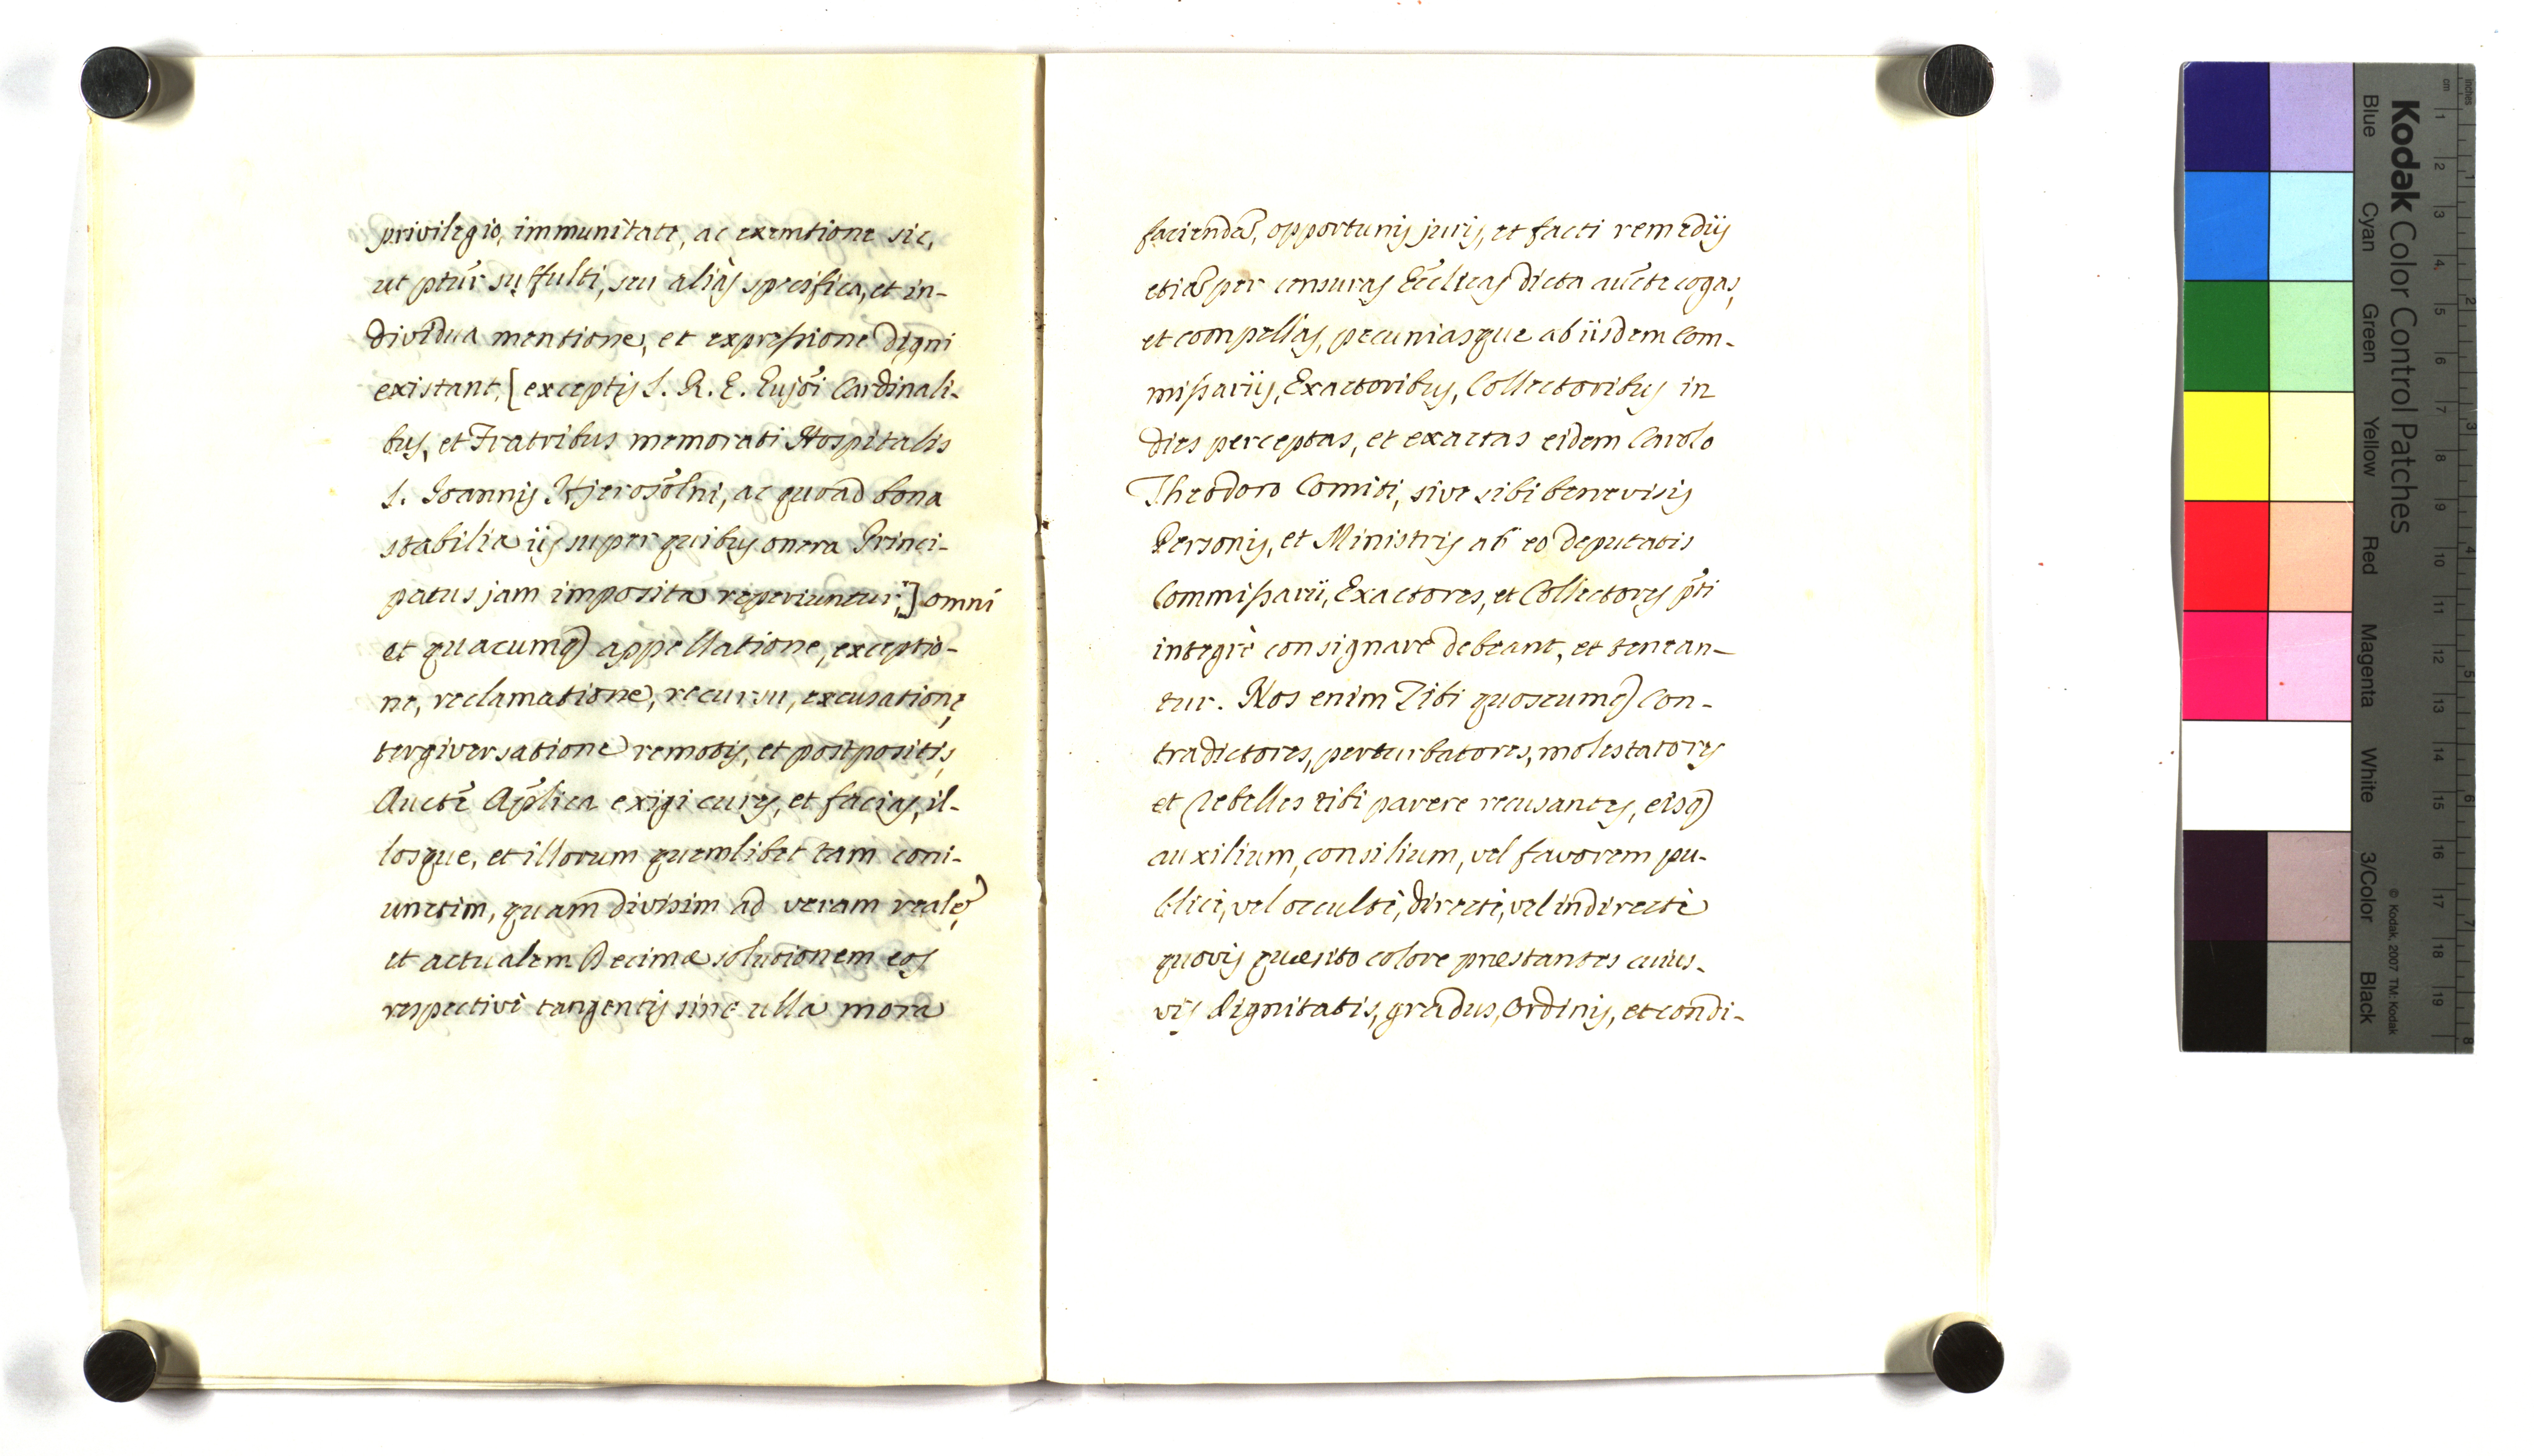 privilegio, immunitate, ac exemtione sic,
ut ptur suffulti, seu aliàs specifica, et in-
dividua mentione, et expressione digni
existant, [exceptis S. R. E. Cardinali-
bus, et Fratribus memorati Hospitalis
S. Joannis Hjerosolni, ac quoad bona
stabilia iis super quibus onera Princi-
patus jam imposita reperiuntur,] omni
et quacumq appellatione, exceptio-
ne, reclamatione, recursu, excusatione,
tergiversatione remotis, et postpositis,
Aucte Aplica exigi cures, et facias, il-
losque, et illorum quemlibet tam coni-
unctim, quam divisim ad veram realē,
et actualem Decimæ solutionem eos
respectivè tangentis sine ulla mora
faciendā, opportunis juris, et facti remediis
etiā per censuras Eccleas dicta aucte cogas,
et compellas, pecuniasque ab iisdem Com-
missariis, Exactoribus, Collectoribus in
dies perceptas, et exactas eidem Carolo
Theodoro Comiti, sive sibi benevisis
Personis, et Ministris ab eo deputatis
Commissarii, Exactores, et Collectores pti
integrè consignare debeant, et tenean-
tur. Nos enim Tibi quoscumq Con-
tradictores, perturbatores, molestatores
et Rebelles tibi parere recusantes, eisq
auxilium, consilium, vel favorem pu-
blicè, vel occultè, directè, vel indirectè
quovis quæsito colore præstantes cuius-
vis dignitatis, gradus, Ordinis, et condi-
Kodak Color Control Patches
Blue
Cyan
Green
Yellow
Red
Magenta
White
3/Color
Black
© Kodak, 2007 TM: Kodak
cm 1 2 3 4 5 6 7 8 9 10 11 12 13 14 15 16 17 18 19
inches 1 2 3 4 5 6 7 8